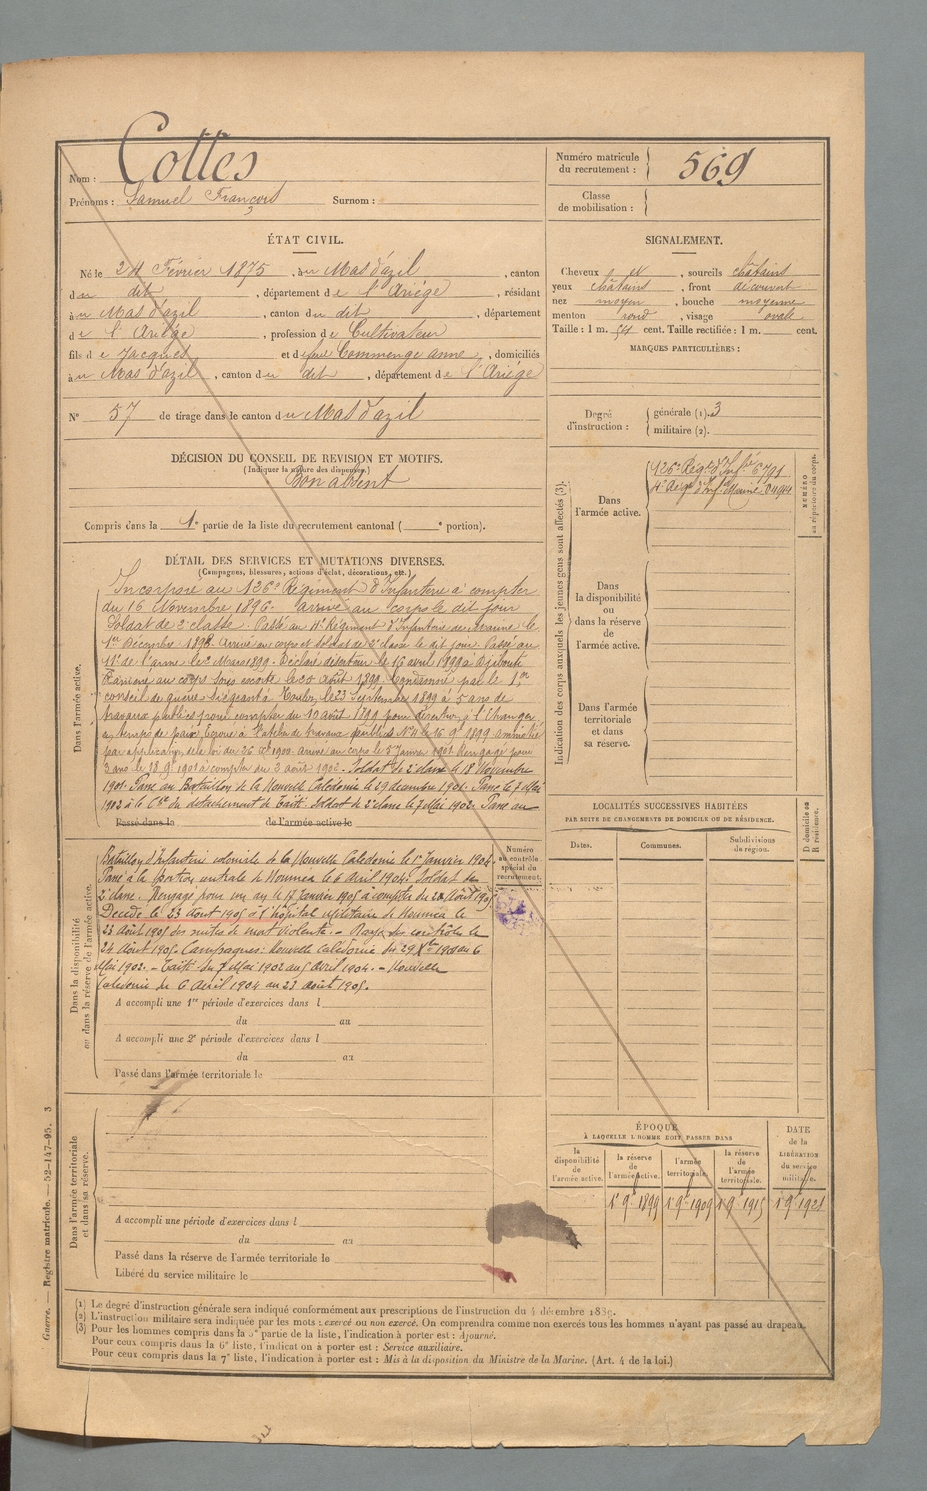 Nom : Cottes
Prénoms : Samuel François Surnom :
Numéro matricule du recrutement : 569
Classe de mobilisation :
ÉTAT CIVIL.
Né le 24 Février 1875, au Mas d'azil, canton
du dit, département de l'Ariége, résidant
à u Mas d'azil, canton du dit, département
de l'Ariége, profession de Cultivateur
fils de Jacques et de feue Commenge anne, domiciliés
à u Mas d'azil, canton du dit, département de l'Ariége
N° 57 de tirage dans le canton du Mas d'azil
DÉCISION DU CONSEIL DE REVISION ET MOTIFS.
(Indiquer la nature des dispenses.)
Bon absent
Compris dans la 1e partie de la liste du recrutement cantonal ( e portion).
SIGNALEMENT.
Cheveux et, sourcils châtains
yeux châtains, front découvert
nez moyen, bouche moyenne
menton rond, visage ovale
Taille : 1 m. cent. Taille rectifiée : 1 m. cent.
MARQUES PARTICULIÈRES :
Degré d'instruction : générale (1). 3
militaire (2).
DÉTAIL DES SERVICES ET MUTATIONS DIVERSES.
(Campagnes, blessures, actions d'éclat, décorations, etc.)
Dans l'armée active.
Incorporé au 126e Régiment d'Infanterie à compter
du 16 Novembre 1896. arrivé au corps le dit jour
Soldat de 2e classe. Passé au 4e Régiment d'Infanterie de marine le
1er Décembre 1898. Arrivé au corps et soldat de 2e classe le dit jour. Passé au
11e de l'arme le 2 Mars 1899. Déclaré déserteur le 16 avril 1899 à Djibouti
Ramené au corps sous escorte le 20 août 1899. Condamné par le 1er
conseil de guerre siégeant à Toulon, le 23 Septembre 1899 à 5 ans de
travaux publics pour compter du 10 août 1899 pour désertion à l'étranger
en temps de paix. Ecroué à l'atelier de travaux publics N° 4 le 16 9e 1899 amnistié
par application de la loi du 26 Xe 1900 arrivé au corps le 8 Janvier 1901 Rengagé pour
3 ans le 18 9e 1901 à compter du 3 août 1902. Soldat de 2e classe le 18 Novembre
1901. Passé au Bataillon de la Nouvelle Calédonie le 29 décembre 1901. Passé le 7 Mai
1902 à la Cie de détachement de Taïti. Soldat de 2e classe le 7 Mai 1902. Passé au
Passé dans la de l'armée active le
Dans la disponibilité ou dans la réserve de l'armée active.
Bataillon d'Infanterie coloniale de la Nouvelle Calédonie le 1er Janvier 1904.
Passé à la portion centrale de Noumea le 6 Avril 1904. Soldat de
2e classe. Rengagé pour un an le 17 Janvier 1905 à compter du 20 Août 1905
Décédé le 23 Aout 1905 à l'hôpital militaire de Noumea le
23 Août 1905 des suites de mort violente. - Rayé des contrôles le
24 Août 1905. Campagnes : Nouvelle Calédonie du 29 Xbre 1901 au 6
Mai 1902. - Taïti du 7 Mai 1902 au 5 Avril 1904. - Nouvelle
Calédonie du 6 Avril 1904 au 23 Août 1905.
A accompli une 1re période d'exercices dans l
du au
A accompli une 2e période d'exercices dans l
du au
Passé dans l'armée territoriale le
Numéro au contrôle spécial du recrutement.
Dans l'armée territoriale et dans sa réserve.
A accompli une période d'exercices dans l
du au
Passé dans la réserve de l'armée territoriale le
Libéré du service militaire le
Indication des corps auxquels les jeunes gens sont affectés (3).
NUMÉRO au répertoire du corps.
Dans l'armée active.
126e Régt d'Infie 6791
4e Régt d'Inf Marine
Dans la disponibilité ou dans la réserve de l'armée active.
Dans l'armée territoriale et dans sa réserve.
LOCALITÉS SUCCESSIVES HABITÉES
PAR SUITE DE CHANGEMENTS DE DOMICILE OU DE RÉSIDENCE.
Dates. Communes. Subdivisions de région. D domicile ou R résidence.
ÉPOQUE
À LAQUELLE L'HOMME DOIT PASSER DANS
la disponibilité de l'armée active.
la réserve de l'armée active.
l'armée territoriale.
la réserve de l'armée territoriale.
DATE de la LIBÉRATION du service militaire.
1er 9e 1899 1er 9e 1909 1er 9e 1915 1er 9e 1921
(1) Le degré d'instruction générale sera indiqué conformément aux prescriptions de l'instruction du 4 décembre 1889.
(2) L'instruction militaire sera indiquée par les mots : exercé ou non exercé. On comprendra comme non exercés tous les hommes n'ayant pas passé au drapeau.
(3) Pour les hommes compris dans la 5e partie de la liste, l'indication à porter est : Ajourné.
Pour ceux compris dans la 6e liste, l'indication à porter est : Service auxiliaire.
Pour ceux compris dans la 7e liste, l'indication à porter est : Mis à la disposition du Ministre de la Marine. (Art. 4 de la loi.)
Guerre. — Registre matricule. — 52-147-95. 3